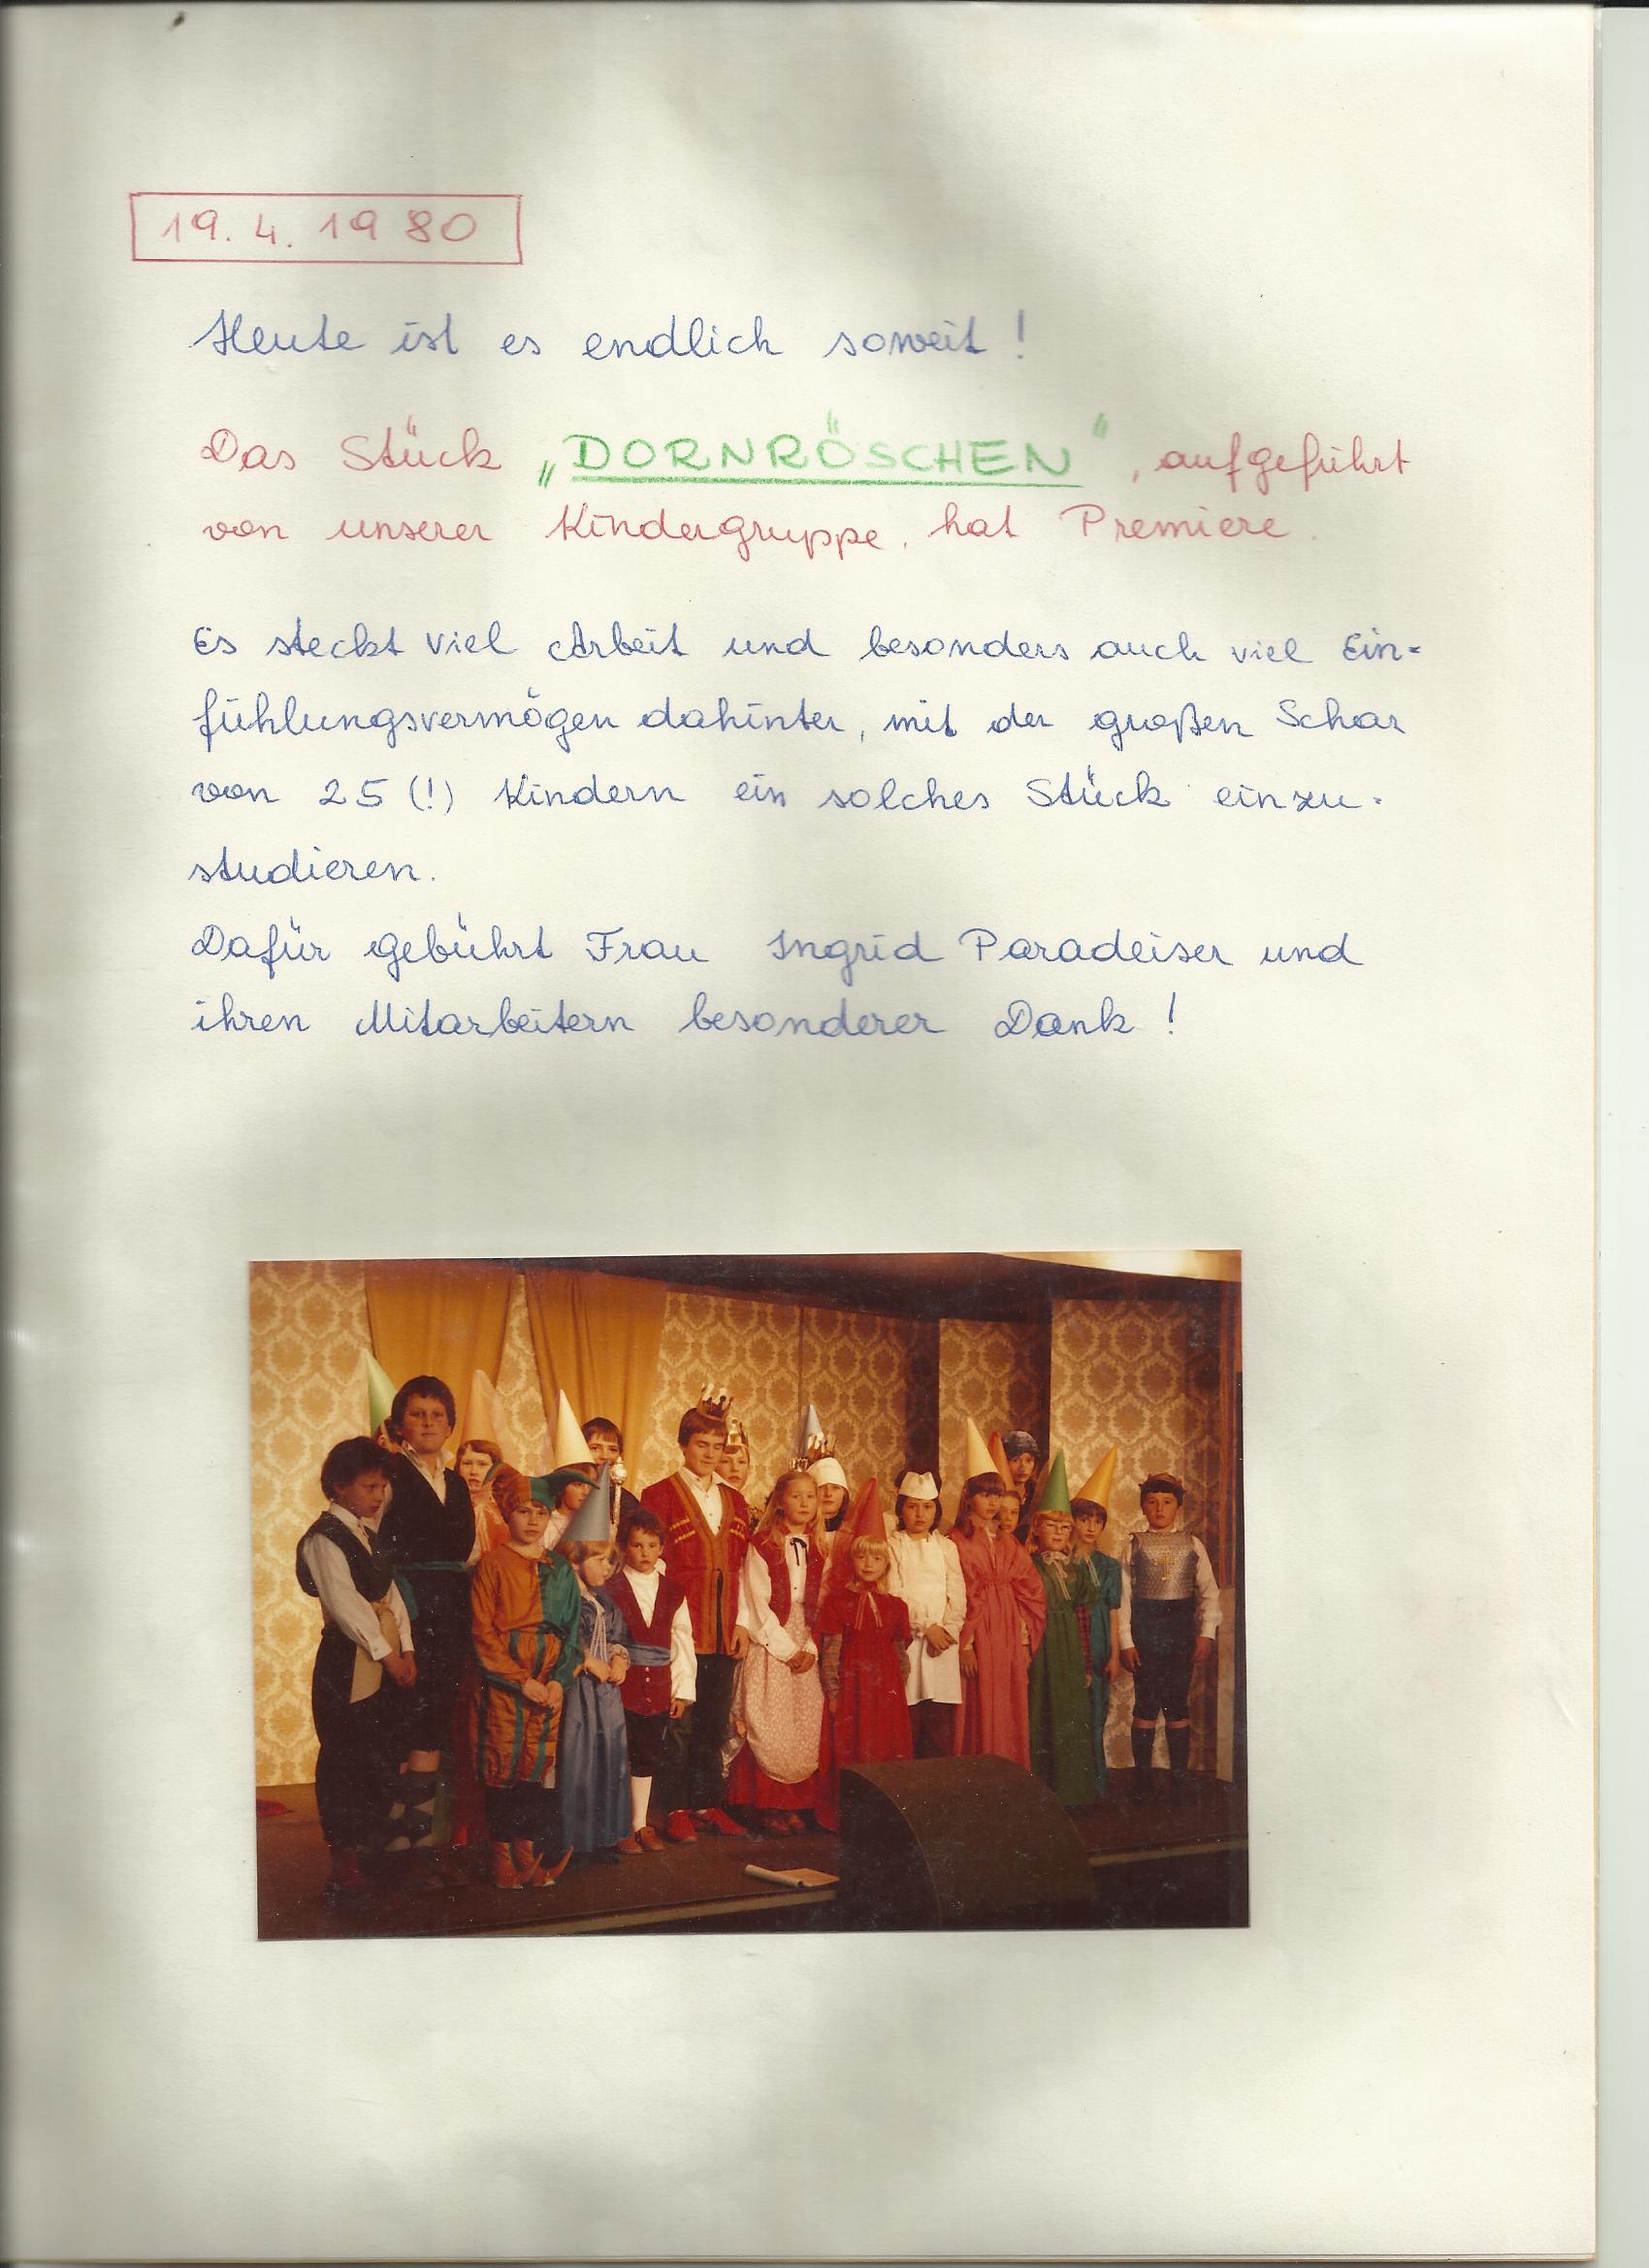 19. 4. 1980
Heute ist es endlich soweit!
Das Stück „DORNRÖSCHEN", aufgeführt
von unserer Kindergruppe, hat Premiere.
Es steckt viel Arbeit und besonders auch viel Ein-
fühlungsvermögen dahinter, mit der großen Schar
von 25 (!) Kindern ein solches Stück einzu-
studieren.
Dafür gebührt Frau Ingrid Paradeiser und
ihren Mitarbeitern besonderer Dank!